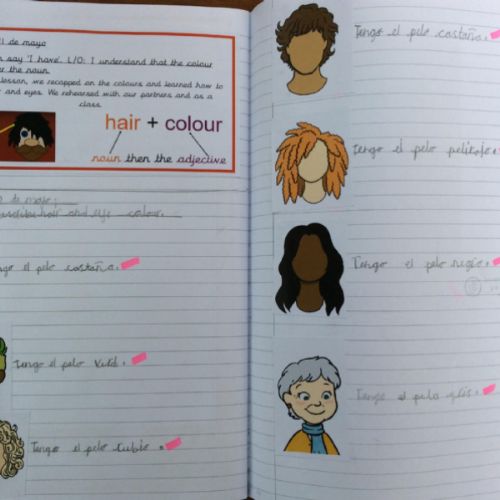 11 de mayo
say 'I have'. L/O: I understand that the colour
r the noun.
lesson, we recapped on the colours and learned how to
and eyes. We rehearsed with our partners and as a
class.
hair + colour
noun then the adjective
de mayo
describe hair and eye colour.
ngo el pelo castaño.
tengo el pelo verd.
Tengo el pelo rubio.
Tengo el pelo castaño.
tengo el pelo pelirojo.
Tengo el pelo negro.
Tengo el pelo gris.